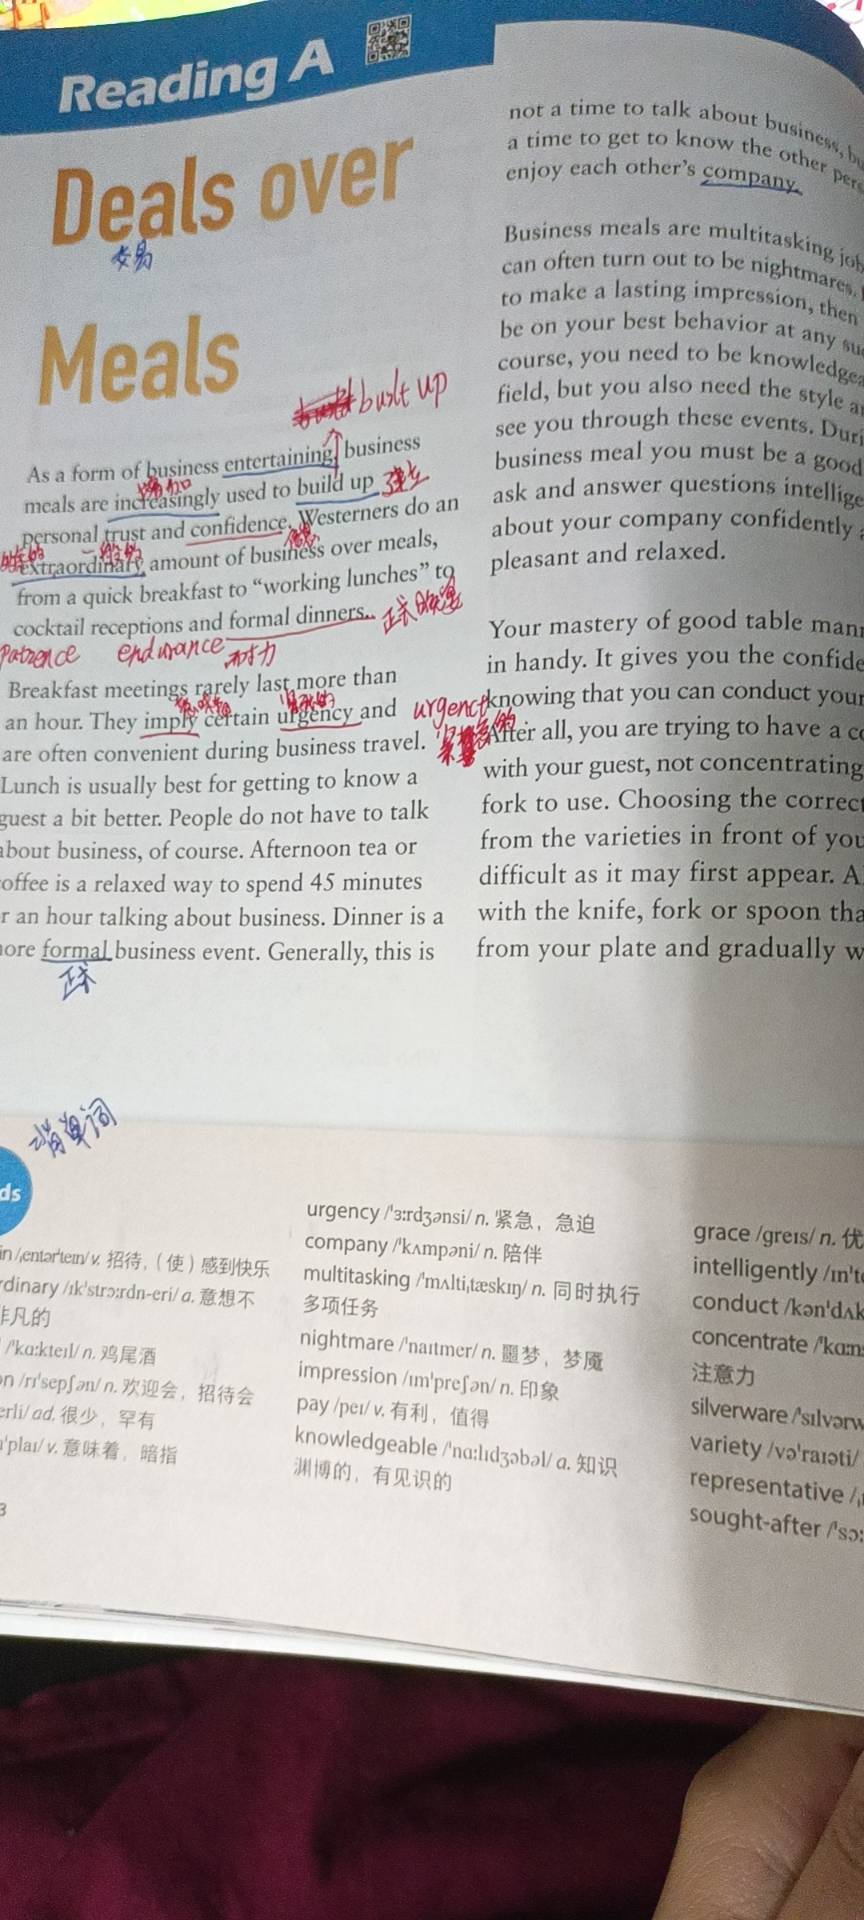 Reading A
Deals over
交易
Meals
built up
As a form of business entertaining, business
增加
meals are increasingly used to build up
建立
personal trust and confidence. Westerners do an
extraordinary amount of business over meals,
from a quick breakfast to “working lunches” to
cocktail receptions and formal dinners.
patience endurance 耐力
Breakfast meetings rarely last more than
an hour. They imply certain urgency and
are often convenient during business travel.
Lunch is usually best for getting to know a
guest a bit better. People do not have to talk
about business, of course. Afternoon tea or
coffee is a relaxed way to spend 45 minutes
or an hour talking about business. Dinner is a
more formal business event. Generally, this is
正式
not a time to talk about business,
a time to get to know the other
enjoy each other’s company.
Business meals are multitasking
can often turn out to be nightmares.
to make a lasting impression, then
be on your best behavior at any
course, you need to be
field, but you also need the style
see you through these events.
business meal you must be a good
ask and answer questions
about your company confidently
pleasant and relaxed.
Your mastery of good table
in handy. It gives you the
knowing that you can conduct
After all, you are trying to have a
with your guest, not concentrating
fork to use. Choosing the
from the varieties in front of
difficult as it may first appear.
with the knife, fork or spoon
from your plate and gradually
背单词
ds
in /ˌentərˈteɪn/ v. 招待，（使）感到快乐
rdinary /ɪkˈstrɔːrdn-eri/ a. 意想不
非凡的
/ˈkɑːkteɪl/ n. 鸡尾酒
on /rɪˈsepʃən/ n. 欢迎会，招待会
erli/ ad. 很少，罕有
ˈplaɪ/ v. 意味着，暗指
3
urgency /ˈɜːrdʒənsi/ n. 紧急，急迫
company /ˈkʌmpəni/ n. 陪伴
multitasking /ˈmʌltiˌtæskɪŋ/ n. 同时执行
多项任务
nightmare /ˈnaɪtmer/ n. 噩梦，梦魇
impression /ɪmˈpreʃən/ n. 印象
pay /peɪ/ v. 有利，值得
knowledgeable /ˈnɑːlɪdʒəbəl/ a. 知识
渊博的，有见识的
grace /greɪs/ n. 优
intelligently /ɪnˈt
conduct /kənˈdʌk
concentrate /ˈkɑːn
注意力
silverware /ˈsɪlvərw
variety /vəˈraɪəti/
representative /ˌ
sought-after /ˈsɔː